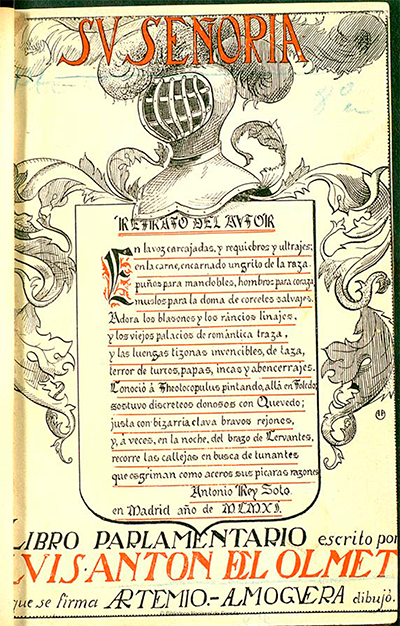 SV SEÑORIA
RETRATO DEL AVTOR
En la voz carcajadas, y requiebros y ultrajes;
en la carne, encarnado un grito de la raza.
puños para mandobles, hombros para coraza,
muslos para la doma de corceles salvajes.
Adora los blasones y los ráncios linajes,
y los viejos palacios de romántica traza,
y las luengas tizonas invencibles, de taza,
terror de turcos, papas, incas y abencerrajes.
Conoció á Theotocopulus pintando, allá en Toledo;
sostuvo discreteos donosos con Quevedo;
justa con bizarría, clava bravos rejones,
y, á veces, en la noche, del brazo de Cervantes,
recorre las callejas en busca de tunantes
que esgriman como aceros sus pícaras razones
Antonio Rey Soto.
en Madrid año de MCMXI.
LIBRO PARLAMENTARIO escrito por
LVIS·ANTON DEL OLMET
que se firma ARTEMIO.-ALMOGVERA dibujó.